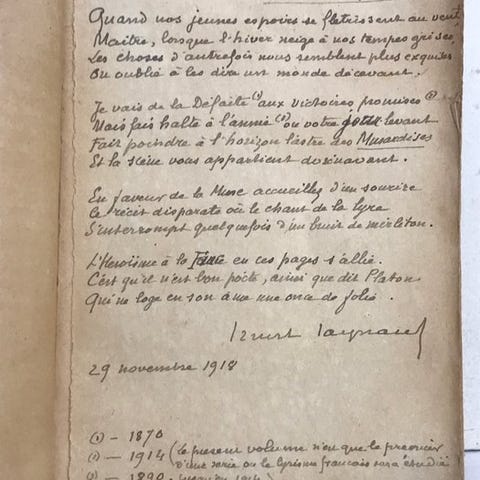 Quand nos jeunes espoirs se flétrissent au vent
Maître, lorsque l'hiver neige à nos tempes grises
Les choses d'autrefois nous semblent plus exquises
On oublie à les dire un monde décevant.
Je vais de la Défaite (1) aux victoires promises (2)
Mais fais halte à l'année (3) où votre jour levant
Fait poindre à l'horizon l'astre des Musardises
Et la scène vous appartient dorénavant.
En faveur de la Muse accueillez d'un sourire
Le récit disparate où le chant de la lyre
S'interrompt quelquefois d'un bruit de mirliton.
L'Héroïsme à la Farce en ces pages s'allie.
C'est qu'il n'est bon poète, ainsi que dit Platon
Qui ne loge en son âme une once de folie.
Ernest Raynaud
29 novembre 1918
(1) – 1870
(2) – 1914 (le présent volume n'en que le premier
d'une série où le lyrisme français sera étudié
(3) – 1890 jusqu'en 1914)